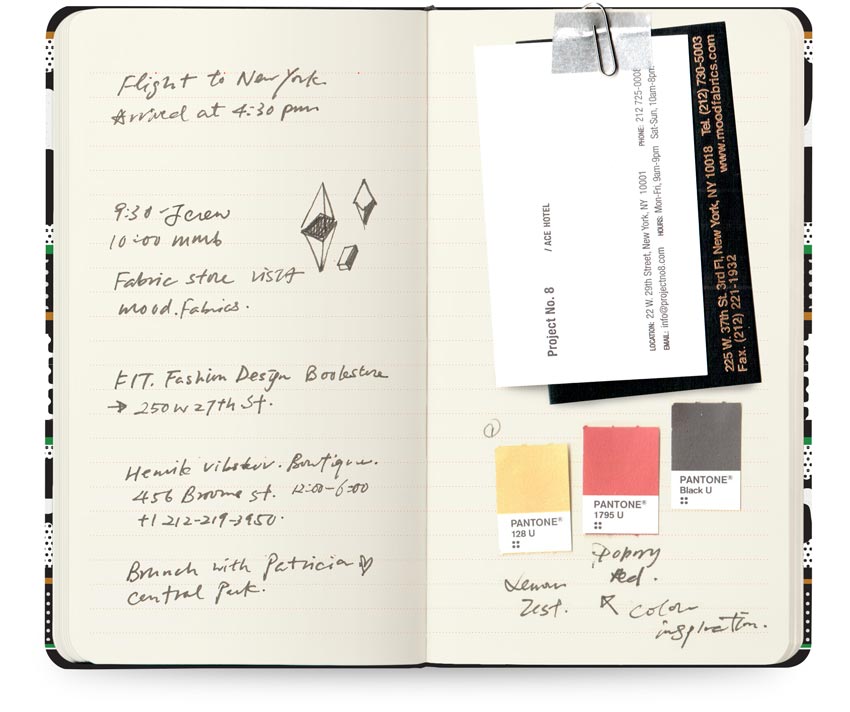 Flight to New York
Arrived at 4:30 pm
9:30 - Jcrew
10:00 mmb
Fabric store visit
mood.fabrics.
FIT. Fashion Design Bookstore
→ 250 w 27th St.
Henrik vibskov. Boutique.
456 Broome st. 12:00-6:00
+1 212-219-3950.
Brunch with Patricia ♡
central Park.
Project No. 8 / ACE HOTEL
LOCATION: 22 W. 29th Street, New York, NY 10001 PHONE: 212 725-0008
EMAIL: info@projectno8.com HOURS: Mon-Fri, 9am-9pm Sat-Sun, 10am-8pm
225 W. 37th St. 3rd Fl, New York, NY 10018 Tel. (212) 730-5003
Fax. (212) 221-1932 www.moodfabrics.com
PANTONE®
128 U
PANTONE®
1795 U
PANTONE®
Black U
Lemon
Zest.
Poppy
Red.
Colour
inspiration.